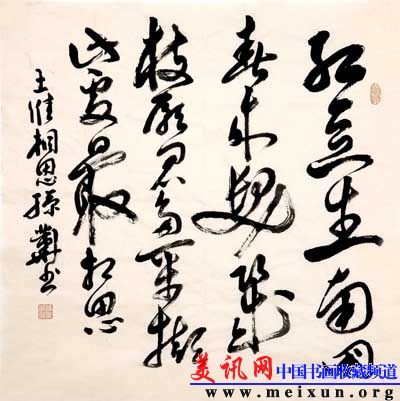 红豆生南國
春来發几
枝愿君多采撷
此物最相思
王维相思孫書
美讯网中国书画收藏频道
www.meixun.org